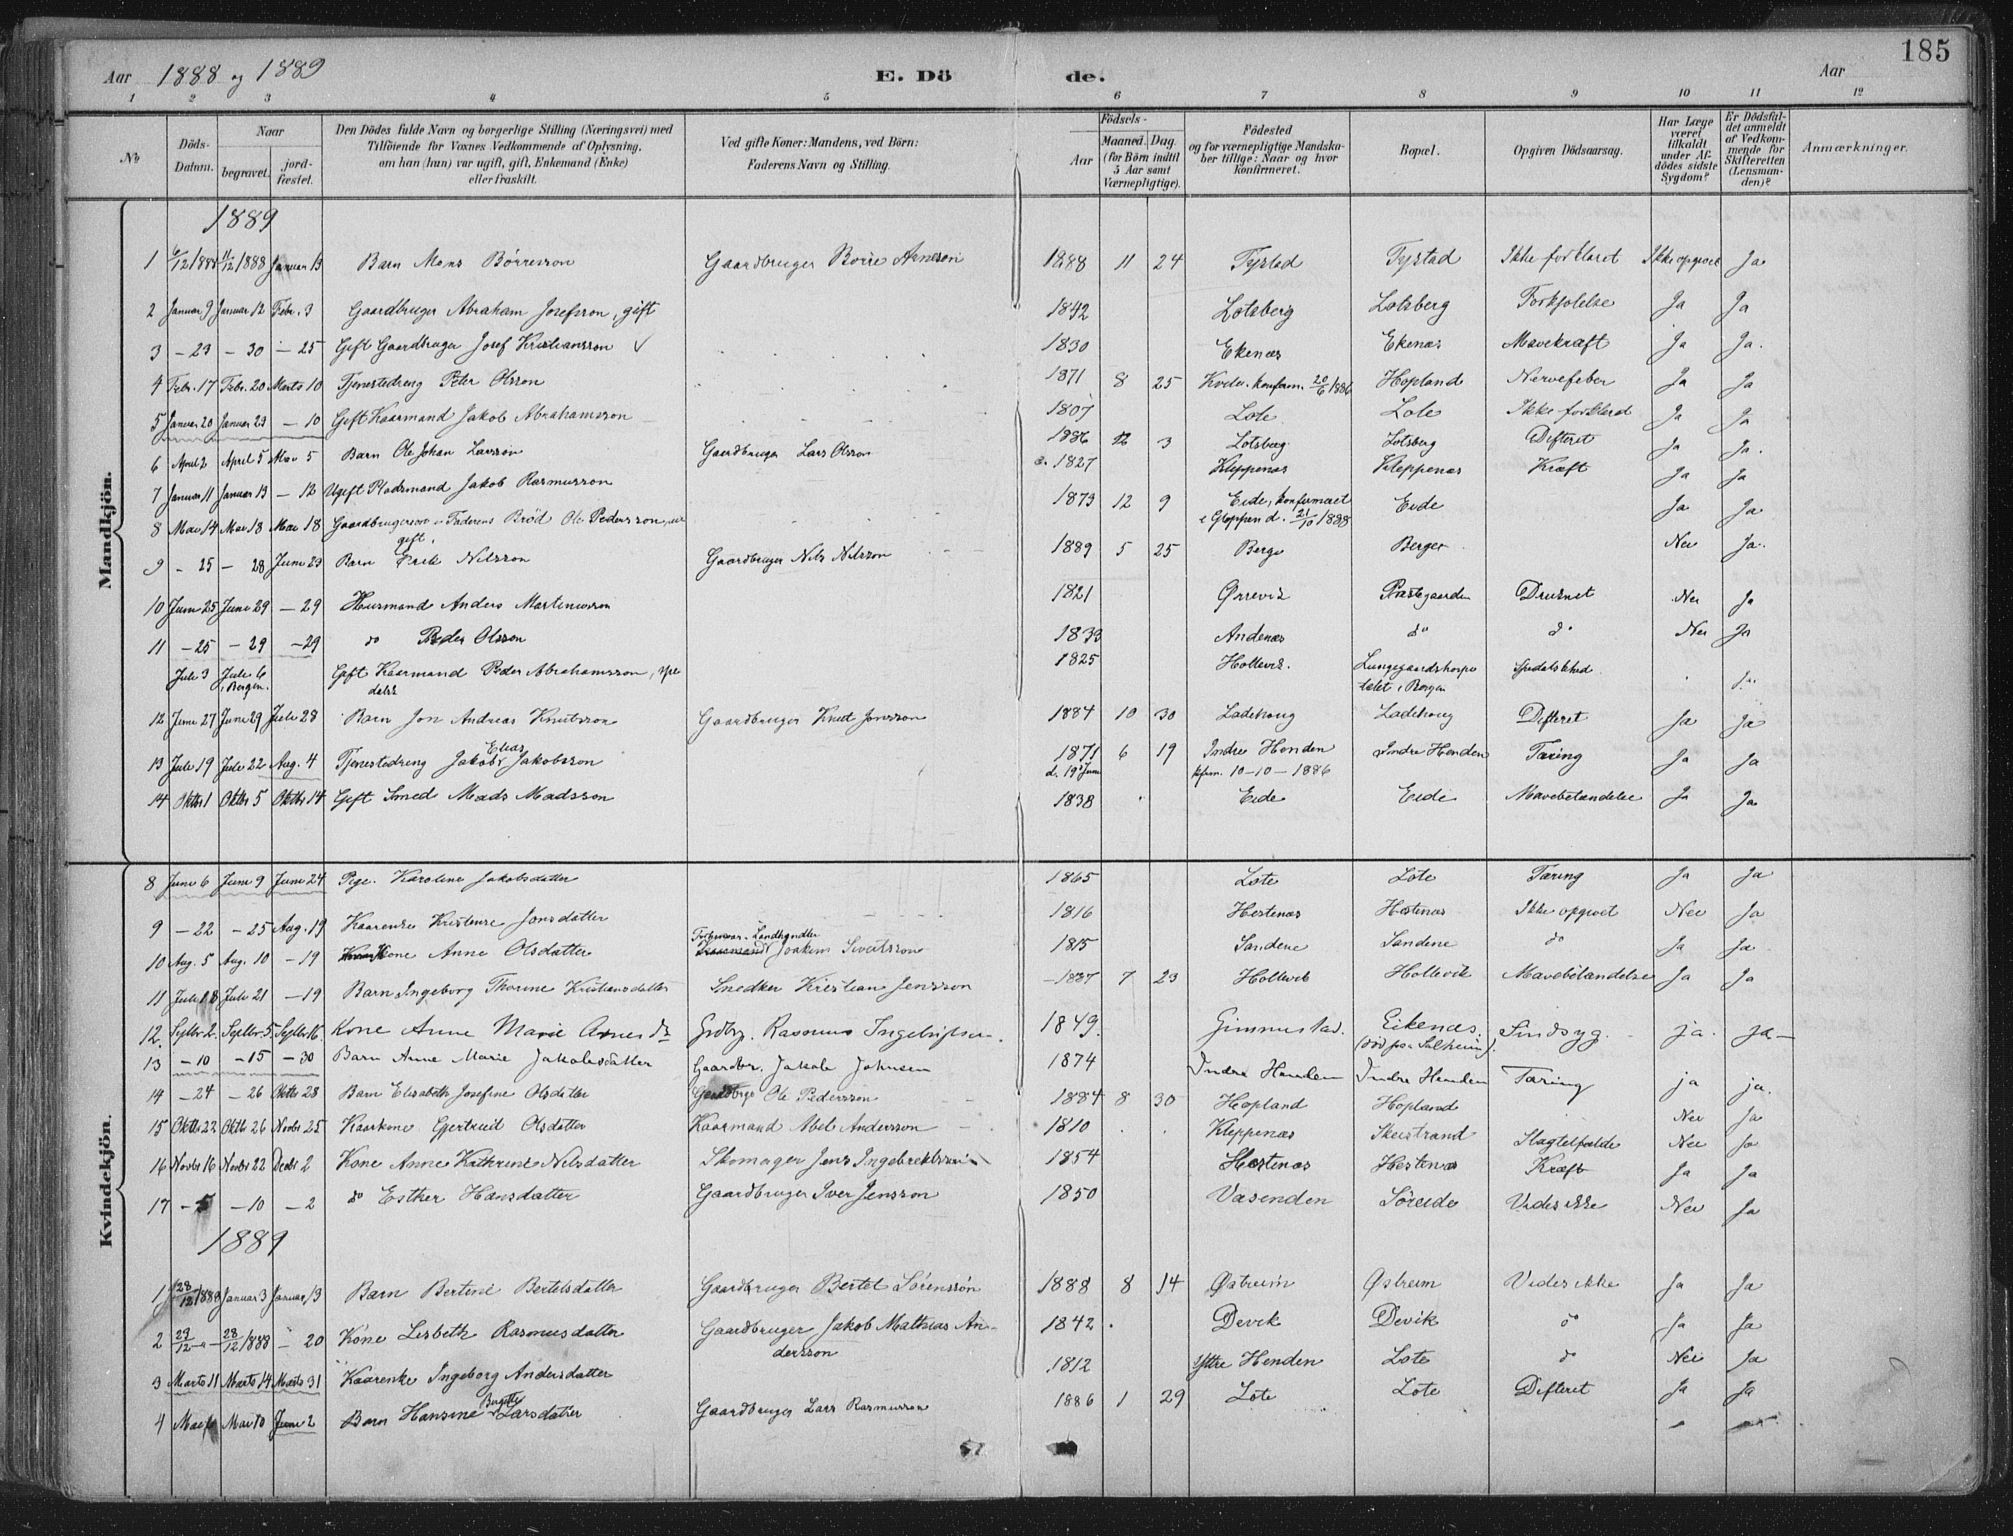 185
Aar 1888 og 1889 E. Dö de. Aar
1 2 3 4 5 6 7 8 9 10 11 12
No
Döds-Datum.
Naar
begravet.
jord-fæstet.
Den Dödes fulde Navn og borgerlige Stilling (Næringsvei) med
Tilföiende for Voxnes Vedkommende af Oplysning,
om han (hun) var ugift, gift, Enkemand (Enke)
eller fraskilt.
Ved gifte Koner: Mandens, ved Börn:
Faderens Navn og Stilling.
Födsels-
Aar
Maaned. Dag.
(for Börn indtil
5 Aar samt
Værnepligtige).
Födested
og for værnepligtige Mandska-
ber tillige: Naar og hvor
konfirmeret.
Bopæl.
Opgiven Dödsaarsag.
Har Læge
været
tilkaldt
under Af-
dödes sidste
Sygdom?
Er Dödsfal-
det anmeldt
af Vedkom-
mende for
Skifteretten
(Lensman-
den)?
Anmærkninger.
Mandkjön.
1889
1 6/12 1888 11/12 1888 Januar 13 Barn Mons Börresson Gaardbruger Börre Arneson 1888 11 24 Tystad Tystad Ikke forklaret Ikke opgivet Ja
2 Januar 9 Januar 12 Febr. 3 Gaardbruger Abraham Josefsson, gift 1842 Lotsberg Lotsberg Forkjølelse Ja Ja
3 - 23 - 30 - 25 Gift Gaardbruger Josef Kristiansson 1830 Ekenæs Ekenæs Mavekræft Ja Ja.
4 Febr. 17 Febr. 20 Marts 10 Tjenestedreng Peter Olsson 1871 8 25 konfirm. 20/6 1886 Hopland Nervefeber Ja Ja
5 Januar 20 Januar 23 - 10 Gift Kaarmand Jakob Abrahamsson 1807 Lote Lote Ikke forklaret Ja Ja
6 April 2 April 5 Mai 5 Barn Ole Johan Larsson Gaardbruger Lars Olsson 1886 12 3 Lotsberg Lotsberg Difterit Ja Ja.
7 Januar 11 Januar 13 - 12 Ugift Pladsmand Jakob Rasmusson 1827 Kleppenæs Kleppenæs Kræft Ja Ja
8 Mai 14 Mai 18 Mai 18 Gaardbrugersøn i Faderens Brød Ole Pedersson, u-
gift. 1873 12 9 Eide, konfirmeret
i Gloppen d. 21/10 1888 Eide Ja Ja
9 - 25 - 28 Juni 23 Barn Erik Nilsson Gaardbruger Nils Nilsson 1889 5 25 Berge Berge Nei Ja.
10 Juni 25 Juni 29 - 29 Husmand Anders Martinusson 1821 Ørrevik Præstegaarden Druknet Nei Ja
11 - 25 - 29 - 29 do Peder Olsson 1833 Andenæs do do Nei Ja
Juli 3 Juli 6
i Bergen. Gift Kaarmand Peder Abrahamsson, spe-
dalsk 1825 Hollevik. Lungegaardshospi-
talet i Bergen Spedalskhed Ja
12 Juni 27 Juni 29 Juli 28 Barn Jon Andreas Knutsson Gaardbruger Knut Jonsson 1884 10 30 Ladehoug Ladehoug Difterit Ja Ja
13 Juli 19 Juli 22 Aug. 4 Tjenestedreng Jakob Elias Jakobsson 1871
d. 19 Juni 6 19 Indre Henden
kfirm. 10-10-1886 Indre Henden Tæring Ja Ja
14 Oktbr 1 Oktbr 5 Oktbr 14 Gift Smed Mads Madsson 1838 Eide Eide Mavebetændelse Ja Ja
Kvindekjön.
8 Juni 6 Juni 9 Juni 24 Pige. Karoline Jakobsdatter 1865 Lote Lote Tæring Ja Ja
9 - 22 - 25 Aug. 19 Kaarenke Kristense Jonsdatter 1816 Hestenæs Hestenæs Ikke opgivet Nei Ja
10 Aug. 5 Aug. 10 - 19 Kone Anne Olsdatter Forhenvær. Landhandler
Kaarmand Joakim Sivertsson 1815 Sandene Sandene do Ja Ja
11 Juli 18 Juli 21 - 19 Barn Ingeborg Thorine Kristiansdatter Snedker Kristian Jensson 1887 7 23 Hollevik Hollevik Mavebetændelse Ja Ja
12. Septbr 2. Septbr 5. Septbr 16. Kone Anne Marie Arnesdr Grdbrg. Rasmus 1849. Gimmestad. Eikenæs.
(død paa Solheim). Sindssyg. ja. ja
13 - 10 - 15 - 30 Barn Anne Marie Jakobsdatter Gaardbr. Jakob Johnsen 1874 Indre Henden Indre Henden Tæring ja ja.
14 - 24 - 26 Oktbr 28 Barn Elisabeth Josefine Olsdatter Gaardbrgr Ole Pedersson 1884 8 30 Hopland Hopland Nei Ja
15 Oktbr 22 Oktbr 26 Novbr 25 Kaarkone Gjertrud Olsdatter Kaarmand Abel Andersson 1810 Kleppenæs Skeistrand Slagtilfælde Nei Ja
16 Novbr 16 Novbr 22 Decbr 2 Kone Anne Kathrine Nilsdatter Skomager Jens Ingebrektsson 1854 Hestenæs Hestenæs Kræft Ja Ja
17 - 5 - 10 - 2 do Esther Hansdatter Gaardbruger Iver Jensson 1850 Vasenden Söreide Vides ikke Nei Ja
1889
1 28/12 1888 Januar 3 Januar 13 Barn Bertine Bertelsdatter Gaardbruger Bertel Sörenssön 1888 8 14 Østreim Østreim Vides ikke Ja Ja
2 23/12 28/12 1888 - 20 Kone Lisbeth Rasmusdatter Gaardbruger Jakob Mathias An-
dersson 1842 Devik Devik do Ja Ja
3 Marts 11 Marts 14 Marts 31 Kaarenke Ingeborg Andersdatter 1812 Yttre Henden Lote do Nei Ja
4 Mai 6 Mai 10 Juni 2 Barn Hansine Birgitte Larsdatter Gaardbruger Lars Rasmusson 1886 1 29 Lote Lote Difterit Ja Ja